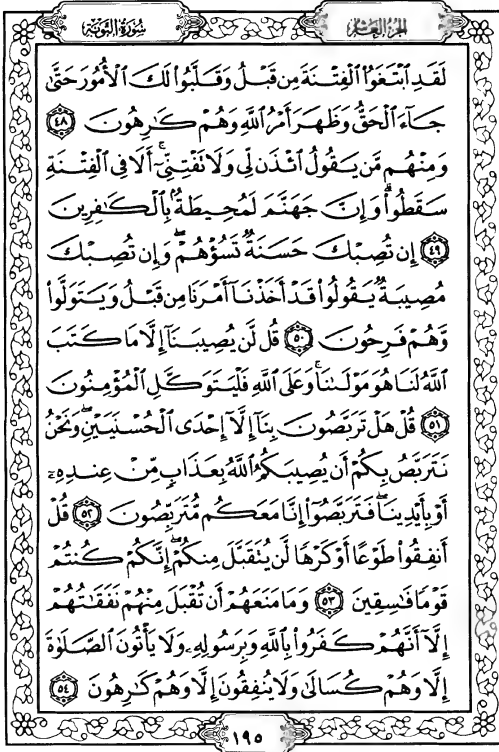 سُورَةُ التَّوْبَةِ
الجُزْءُ العَاشِرُ
لَقَدِ ٱبْتَغَوُا۟ ٱلْفِتْنَةَ مِن قَبْلُ وَقَلَّبُوا۟ لَكَ ٱلْأُمُورَ حَتَّىٰ
جَآءَ ٱلْحَقُّ وَظَهَرَ أَمْرُ ٱللَّهِ وَهُمْ كَٰرِهُونَ ٤٨
وَمِنْهُم مَّن يَقُولُ ٱئْذَن لِّى وَلَا تَفْتِنِّىٓ ۚ أَلَا فِى ٱلْفِتْنَةِ
سَقَطُوا۟ ۗ وَإِنَّ جَهَنَّمَ لَمُحِيطَةٌۢ بِٱلْكَٰفِرِينَ
٤٩ إِن تُصِبْكَ حَسَنَةٌ تَسُؤْهُمْ ۖ وَإِن تُصِبْكَ
مُصِيبَةٌ يَقُولُوا۟ قَدْ أَخَذْنَآ أَمْرَنَا مِن قَبْلُ وَيَتَوَلَّوا۟
وَّهُمْ فَرِحُونَ ٥٠ قُل لَّن يُصِيبَنَآ إِلَّا مَا كَتَبَ
ٱللَّهُ لَنَا هُوَ مَوْلَىٰنَا ۚ وَعَلَى ٱللَّهِ فَلْيَتَوَكَّلِ ٱلْمُؤْمِنُونَ
٥١ قُلْ هَلْ تَرَبَّصُونَ بِنَآ إِلَّآ إِحْدَى ٱلْحُسْنَيَيْنِ ۖ وَنَحْنُ
نَتَرَبَّصُ بِكُمْ أَن يُصِيبَكُمُ ٱللَّهُ بِعَذَابٍ مِّنْ عِندِهِۦٓ
أَوْ بِأَيْدِينَا ۖ فَتَرَبَّصُوٓا۟ إِنَّا مَعَكُم مُّتَرَبِّصُونَ ٥٢ قُلْ
أَنفِقُوا۟ طَوْعًا أَوْ كَرْهًا لَّن يُتَقَبَّلَ مِنكُمْ ۖ إِنَّكُمْ كُنتُمْ
قَوْمًا فَٰسِقِينَ ٥٣ وَمَا مَنَعَهُمْ أَن تُقْبَلَ مِنْهُمْ نَفَقَٰتُهُمْ
إِلَّآ أَنَّهُمْ كَفَرُوا۟ بِٱللَّهِ وَبِرَسُولِهِۦ وَلَا يَأْتُونَ ٱلصَّلَوٰةَ
إِلَّا وَهُمْ كُسَالَىٰ وَلَا يُنفِقُونَ إِلَّا وَهُمْ كَٰرِهُونَ ٥٤
١٩٥